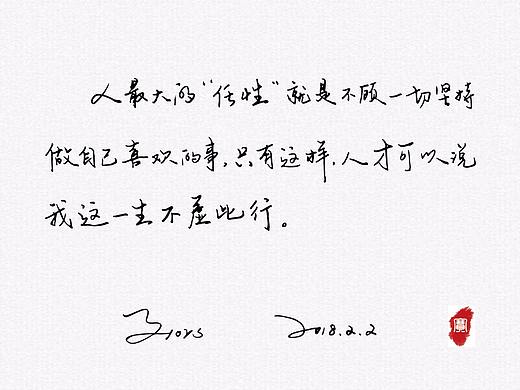 人最大的“任性”就是不顾一切坚持
做自己喜欢的事，只有这样，人才可以说
我这一生不虚此行。
2018.2.2